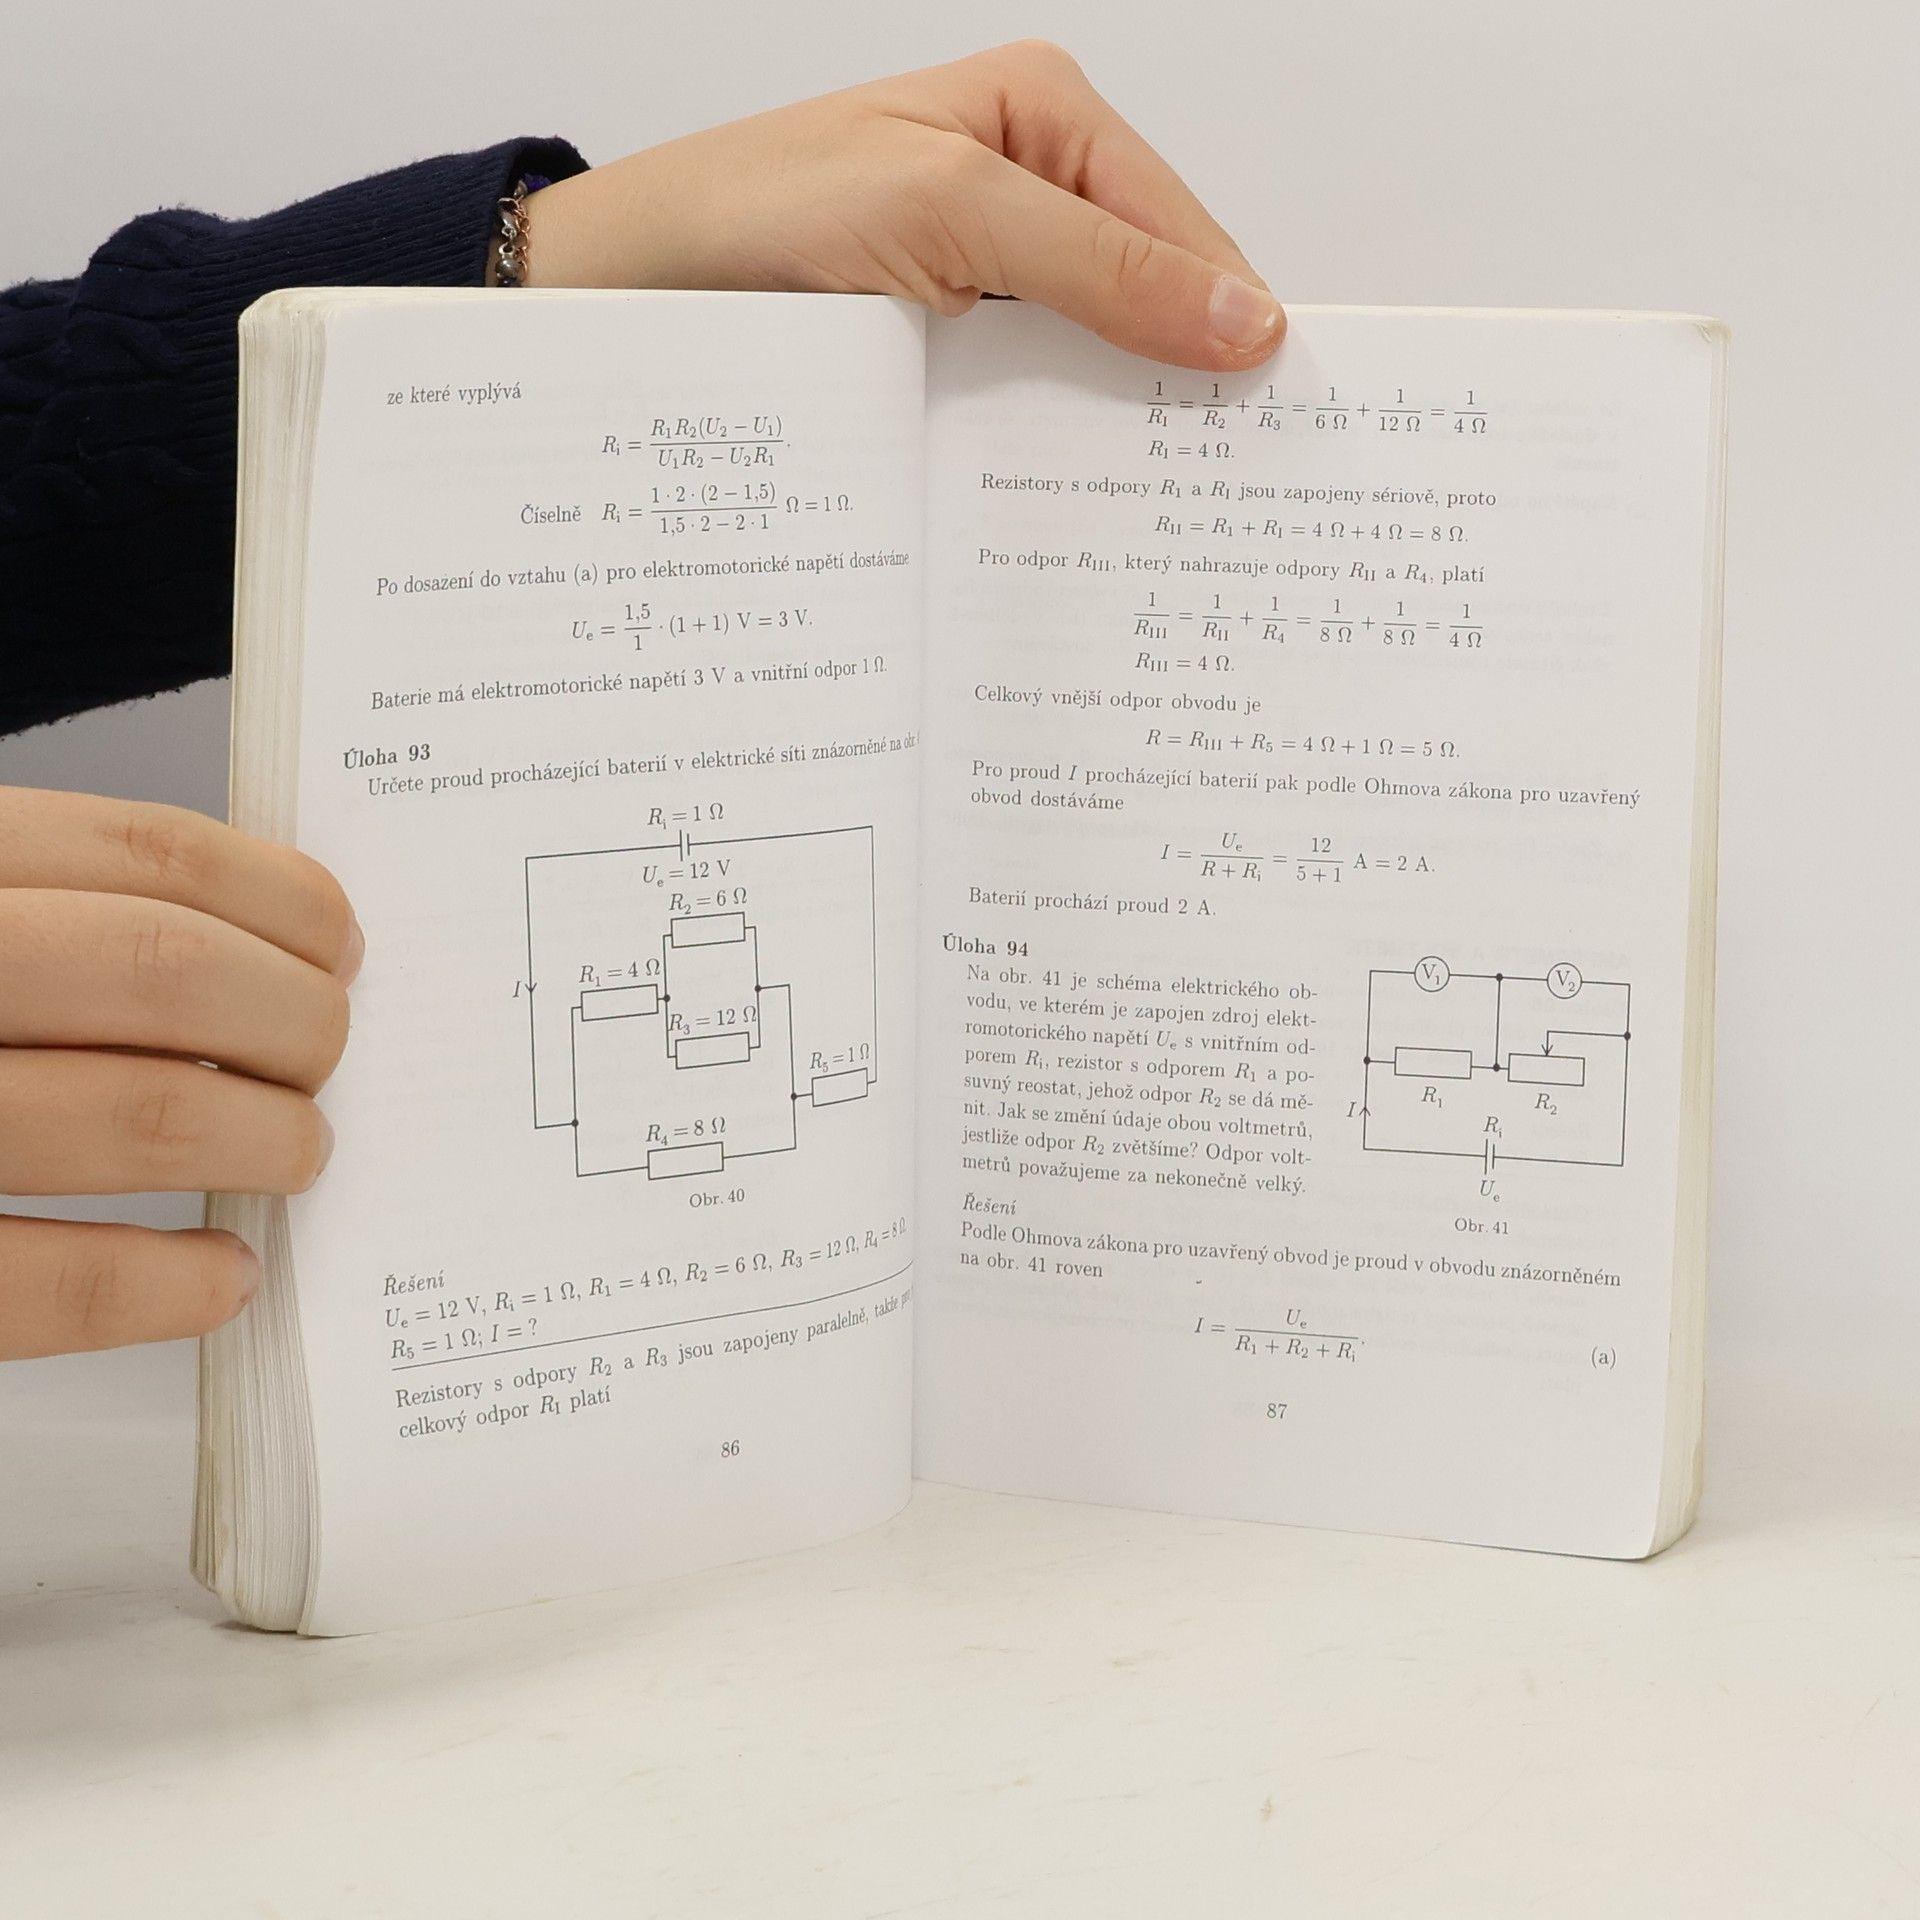 ze které vyplývá
R_i = R_1R_2(U_2 − U_1) / U_1R_2 − U_2R_1.
Číselně R_i = 1 · 2 · (2 − 1,5) / 1,5 · 2 − 2 · 1 Ω = 1 Ω.
Po dosazení do vztahu (a) pro elektromotorické napětí dostáváme
U_e = 1,5 / 1 · (1 + 1) V = 3 V.
Baterie má elektromotorické napětí 3 V a vnitřní odpor 1 Ω.
Úloha 93
Určete proud procházející baterií v elektrické síti znázorněné na obr.
R_i = 1 Ω
U_e = 12 V
R_2 = 6 Ω
R_1 = 4 Ω
I
R_3 = 12 Ω
R_5 = 1 Ω
R_4 = 8 Ω
Obr. 40
Řešení
U_e = 12 V, R_i = 1 Ω, R_1 = 4 Ω, R_2 = 6 Ω, R_3 = 12 Ω, R_4 = 8 Ω
R_5 = 1 Ω; I = ?
Rezistory s odpory R_2 a R_3 jsou zapojeny paralelně, takže
celkový odpor R_I platí
86
1/R_I = 1/R_2 + 1/R_3 = 1/6 Ω + 1/12 Ω = 1/4 Ω
R_I = 4 Ω.
Rezistory s odpory R_1 a R_I jsou zapojeny sériově, proto
R_II = R_1 + R_I = 4 Ω + 4 Ω = 8 Ω.
Pro odpor R_III, který nahrazuje odpory R_II a R_4, platí
1/R_III = 1/R_II + 1/R_4 = 1/8 Ω + 1/8 Ω = 1/4 Ω
R_III = 4 Ω.
Celkový vnější odpor obvodu je
R = R_III + R_5 = 4 Ω + 1 Ω = 5 Ω.
Pro proud I procházející baterií pak podle Ohmova zákona pro uzavřený
obvod dostáváme
I = U_e / R + R_i = 12 / 5 + 1 A = 2 A.
Baterií prochází proud 2 A.
Úloha 94
Na obr. 41 je schéma elektrického ob-
vodu, ve kterém je zapojen zdroj elekt-
romotorického napětí U_e s vnitřním od-
porem R_i, rezistor s odporem R_1 a po-
suvný reostat, jehož odpor R_2 se dá mě-
nit. Jak se změní údaje obou voltmetrů,
jestliže odpor R_2 zvětšíme? Odpor volt-
metrů považujeme za nekonečně velký.
V_1
V_2
R_1
R_2
I
R_i
U_e
Obr. 41
Řešení
Podle Ohmova zákona pro uzavřený obvod je proud v obvodu znázorněném
na obr. 41 roven
I = U_e / R_1 + R_2 + R_i. (a)
87